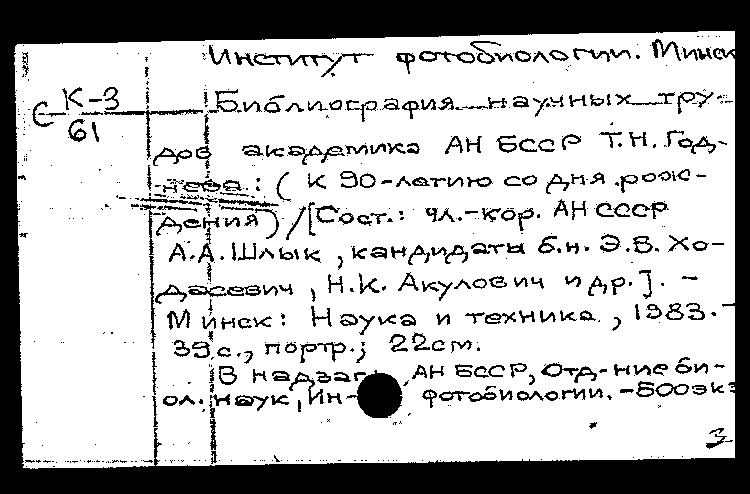 Институт фотобиологии. Минск
С К-3
61
Библиография научных тру-
дов академика АН БССР Т.Н. Год-
нева : ( К 90-летию со дня рож-
дения) / [Сост.: чл.-кор. АН СССР
А.А. Шлык , кандидаты б.н. Э.В. Хо-
дасевич , Н.К. Акулович и др.]. -
Минск : Наука и техника , 1983. -
39 с., портр.; 22 см.
В надзаг. АН БССР, Отд-ние би-
ол. наук, Ин- фотобиологии. - 500 экз
3